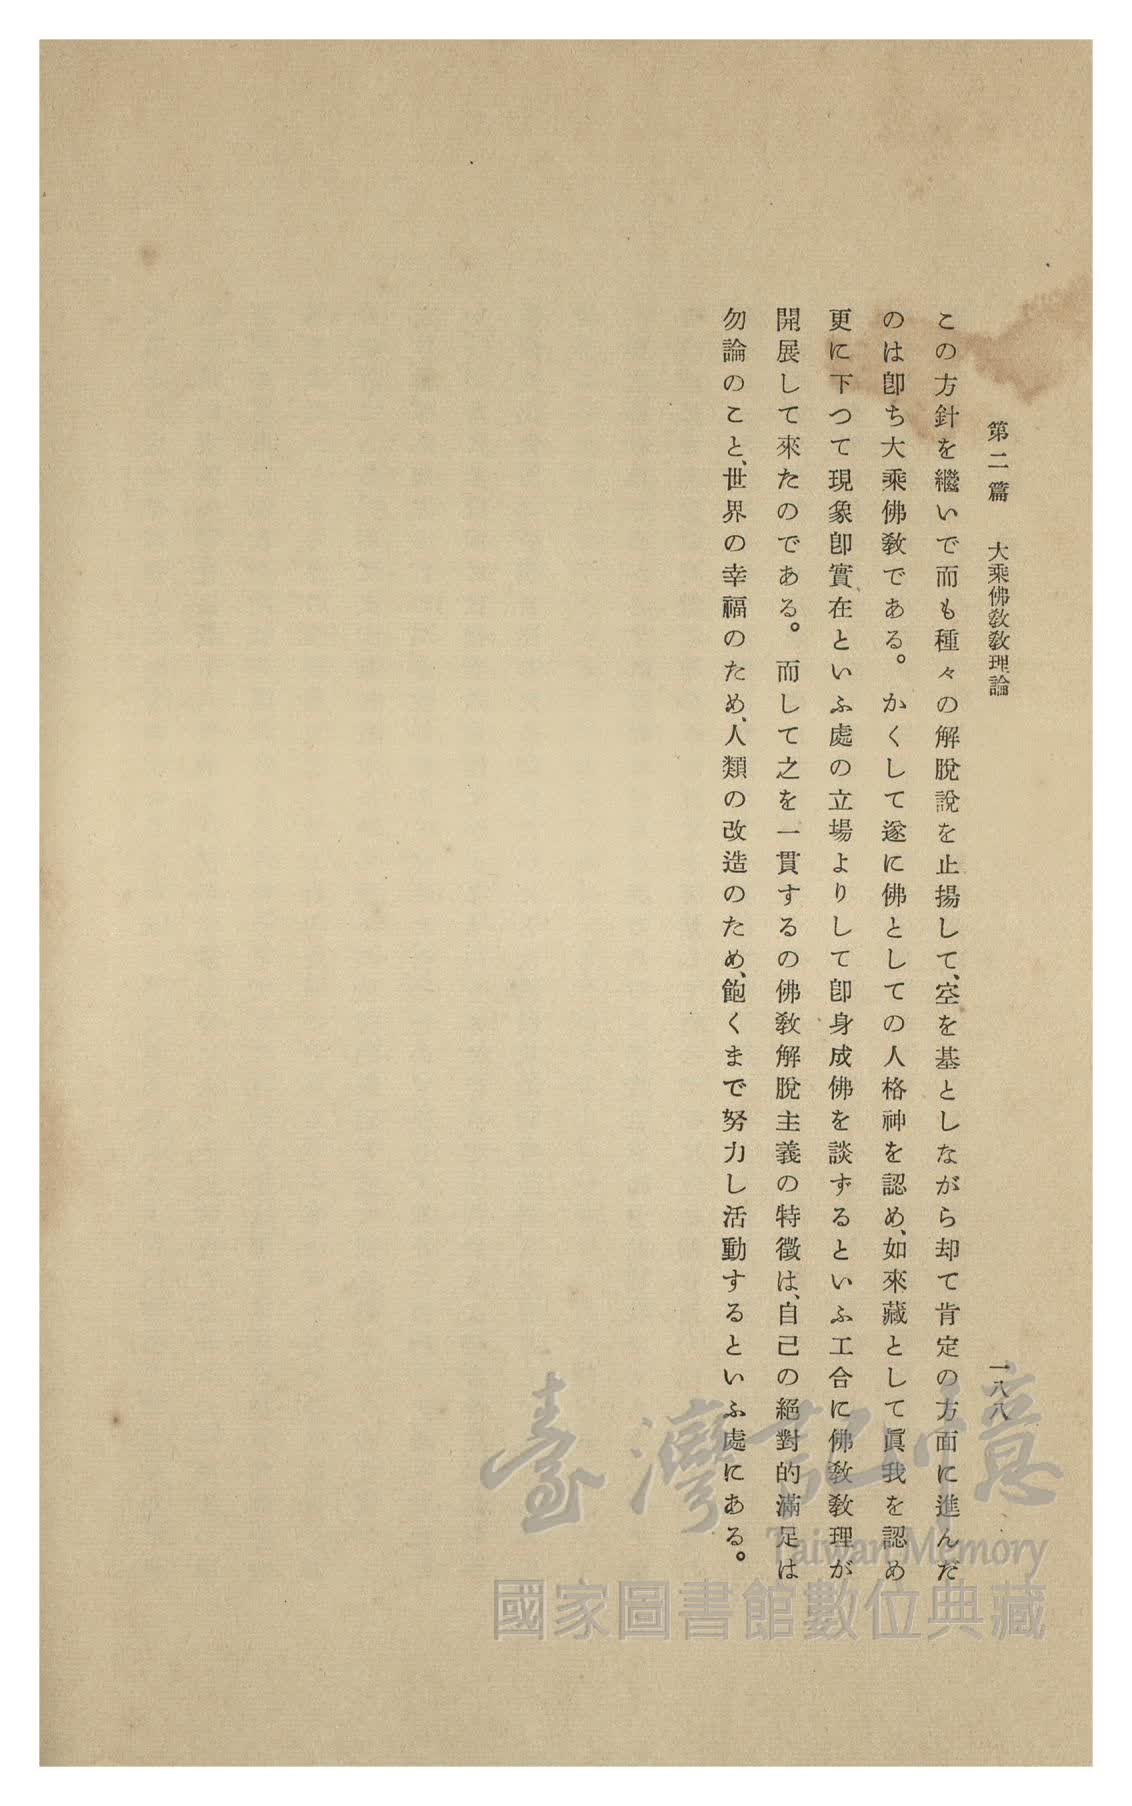 第二篇　大乘佛敎敎理論　一八八
この方針を繼いで而も種々の解脫說を止揚して、空を基としながら却て肯定の方面に進んだ
のは卽ち大乘佛敎である。かくして遂に佛としての人格神を認め、如來藏として眞我を認め
更に下つて現象卽實在といふ處の立場よりして卽身成佛を談ずるといふ工合に佛敎敎理が
開展して來たのである。而して之を一貫するの佛敎解脫主義の特徵は、自己の絕對的滿足は
勿論のこと、世界の幸福のため、人類の改造のため、飽くまで努力し活動するといふ處にある。
臺灣記憶
Taiwan Memory
國家圖書館數位典藏